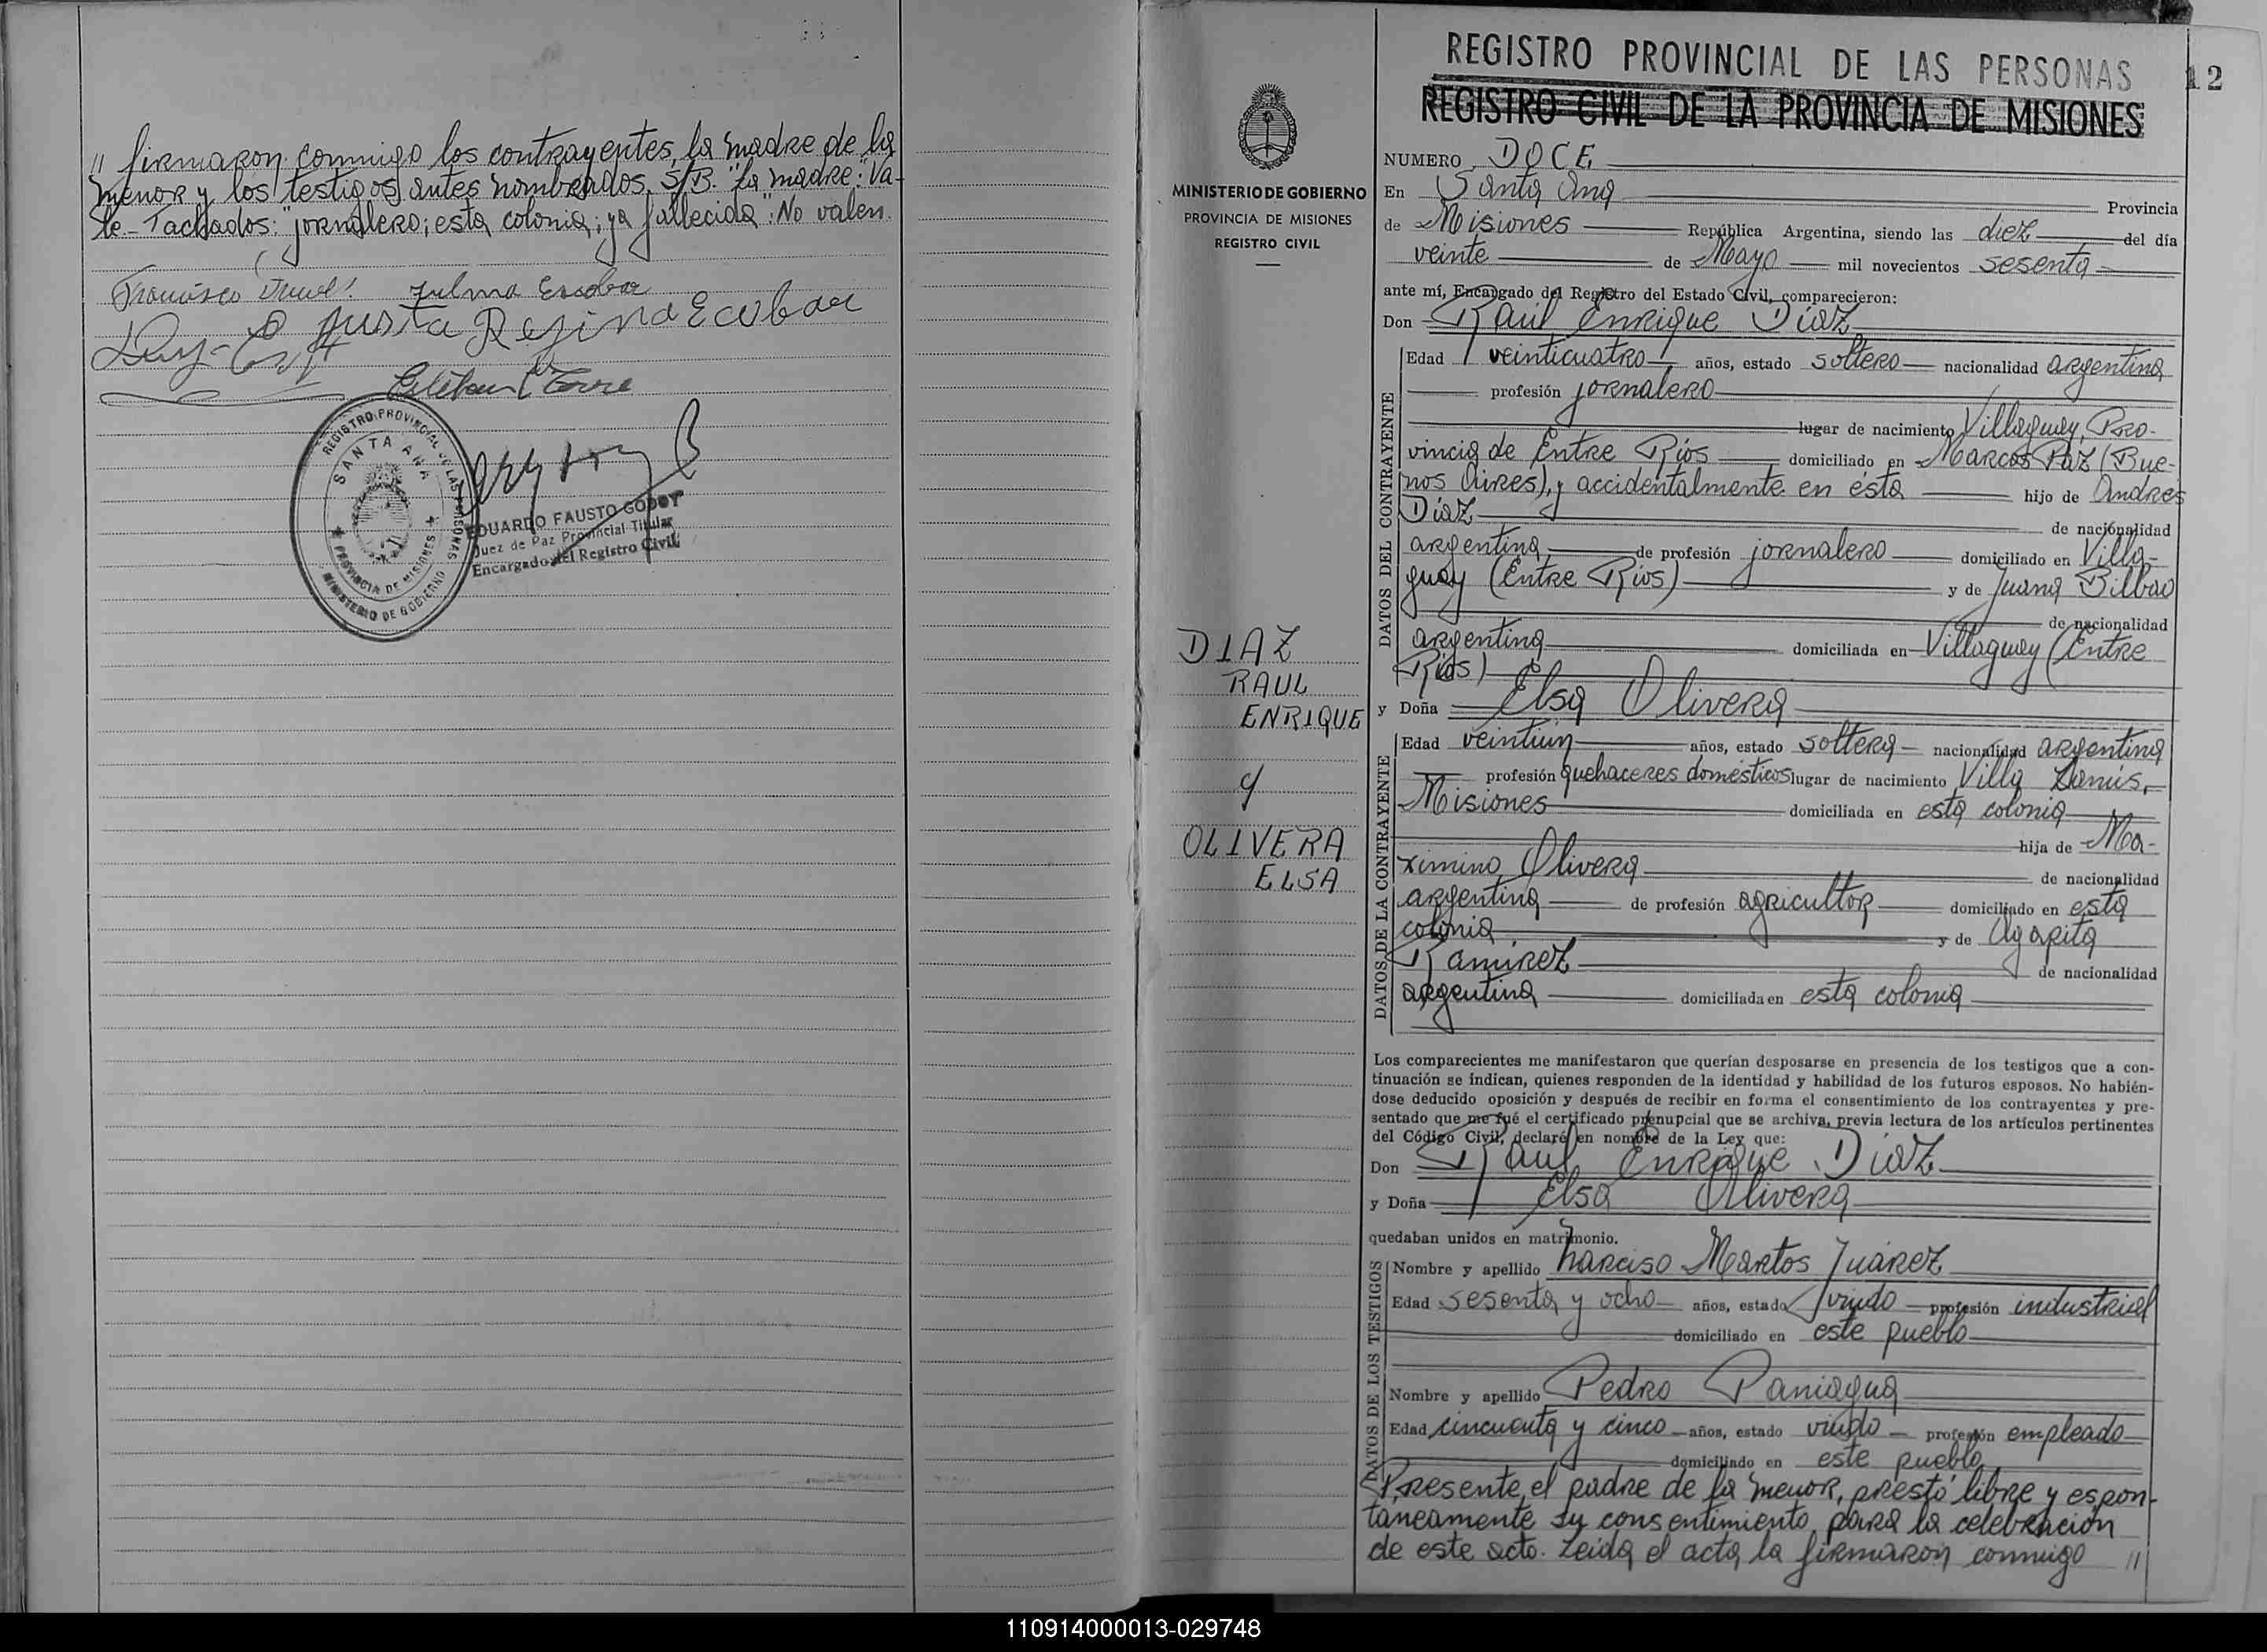 " firmaron conmigo los contrayentes, la madre de la
menor y los testigos antes nombrados. S/B. "La madre": Va-
le.- Tachados: "jornalero; esta colonia; ya fallecida": No valen.
Zulma Escobar
Justa Regina Ecobar
REGISTRO PROVINCIAL DE LAS PERSONAS
SANTA ANA
PROVINCIA DE MISIONES
MINISTERIO DE GOBIERNO
EDUARDO FAUSTO GODOY
Juez de Paz Provincial Titular
Encargado del Registro Civil
MINISTERIO DE GOBIERNO
PROVINCIA DE MISIONES
REGISTRO CIVIL
DIAZ
RAUL
ENRIQUE
y
OLIVERA
ELSA
REGISTRO PROVINCIAL DE LAS PERSONAS
12
REGISTRO CIVIL DE LA PROVINCIA DE MISIONES
NUMERO DOCE
En Santa Ana Provincia
de Misiones República Argentina, siendo las diez del día
veinte de Mayo mil novecientos sesenta
ante mí, Encargado del Registro del Estado Civil, comparecieron:
Don Raúl Enrique Díaz
DATOS DEL CONTRAYENTE
Edad veinticuatro años, estado soltero nacionalidad argentina
profesión jornalero
lugar de nacimiento Villaguay, Pro-
vincia de Entre Ríos domiciliado en Marcos Paz (Bue-
nos Aires), y accidentalmente en ésta hijo de Andrés
Díaz de nacionalidad
argentina de profesión jornalero domiciliado en Villa-
guay (Entre Ríos) y de Juana Bilbao
de nacionalidad
argentina domiciliada en Villaguay (Entre
Ríos)
y Doña Elsa Olivera
DATOS DE LA CONTRAYENTE
Edad veintiún años, estado soltera nacionalidad argentina
profesión quehaceres domésticos lugar de nacimiento Villa Lanús,
Misiones domiciliada en esta colonia
hija de Ma-
ximino Olivera de nacionalidad
argentina de profesión agricultor domiciliado en esta
colonia y de Agapita
Ramírez de nacionalidad
argentina domiciliada en esta colonia
Los comparecientes me manifestaron que querían desposarse en presencia de los testigos que a con-
tinuación se indican, quienes responden de la identidad y habilidad de los futuros esposos. No habién-
dose deducido oposición y después de recibir en forma el consentimiento de los contrayentes y pre-
sentado que me fué el certificado prenupcial que se archiva, previa lectura de los artículos pertinentes
del Código Civil, declaré en nombre de la Ley que:
Don Raúl Enrique Díaz
y Doña Elsa Olivera
quedaban unidos en matrimonio.
DATOS DE LOS TESTIGOS
Nombre y apellido Narciso Martos Juárez
Edad sesenta y ocho años, estado viudo profesión industrial
domiciliado en este pueblo
Nombre y apellido Pedro Paniagua
Edad cincuenta y cinco años, estado viudo profesión empleado
domiciliado en este pueblo
Presente, el padre de la menor, prestó libre y espon-
táneamente su consentimiento para la celebración
de este acto. Leída el acta, la firmaron conmigo "
110914000013-029748